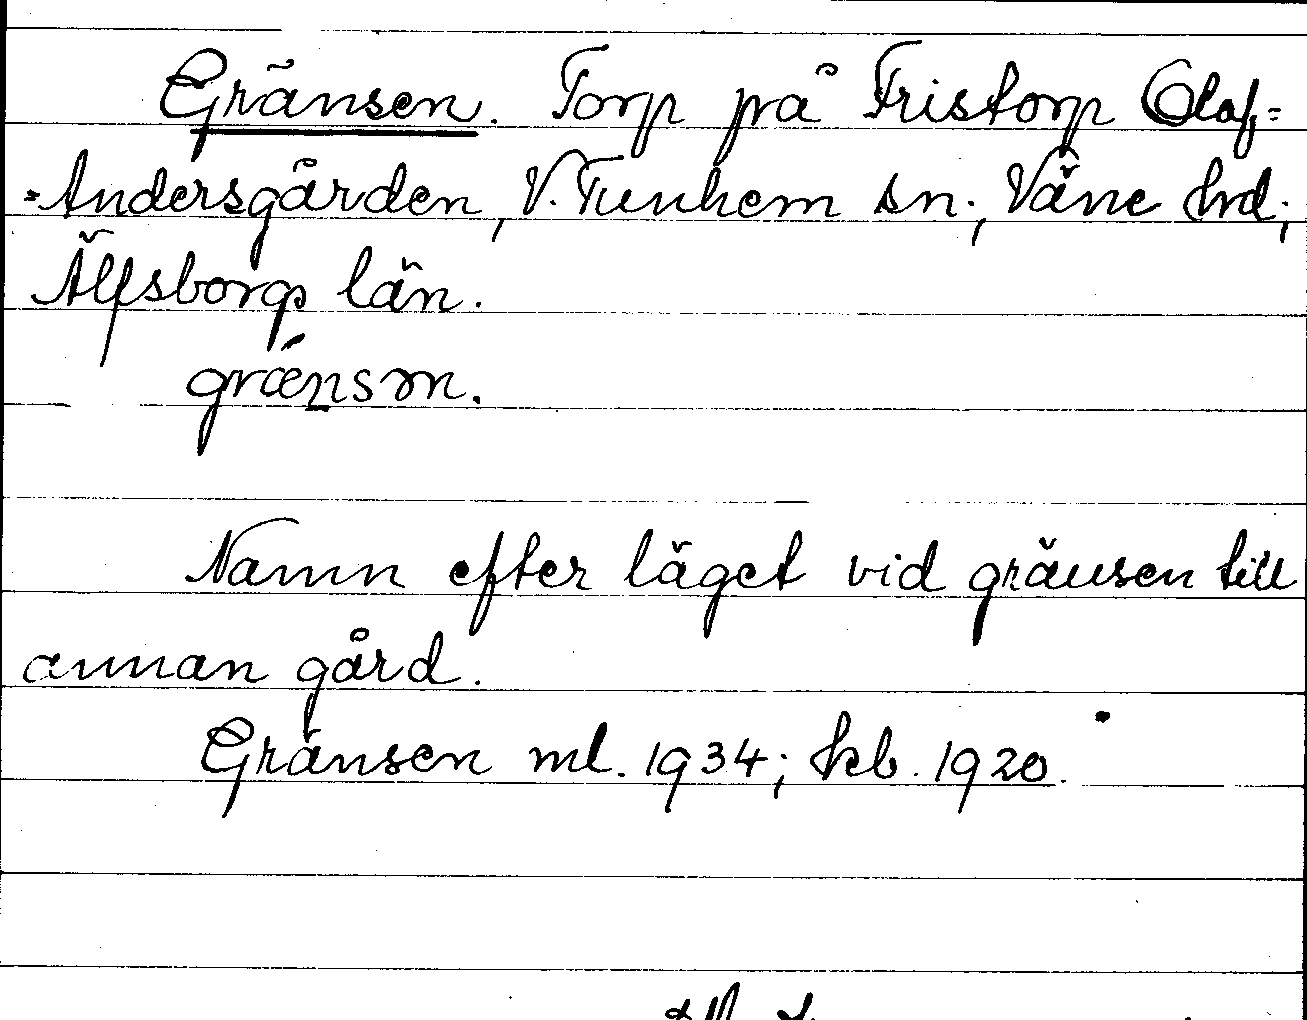 Gränsen. Torp på Fristorp Olof-
-Andersgården, V. Tunhem sn., Väne hd,
Älfsborgs län.
grǽnsn.
Namn efter läget vid gränsen till
annan gård.
Gränsen ml. 1934; kb. 1920.